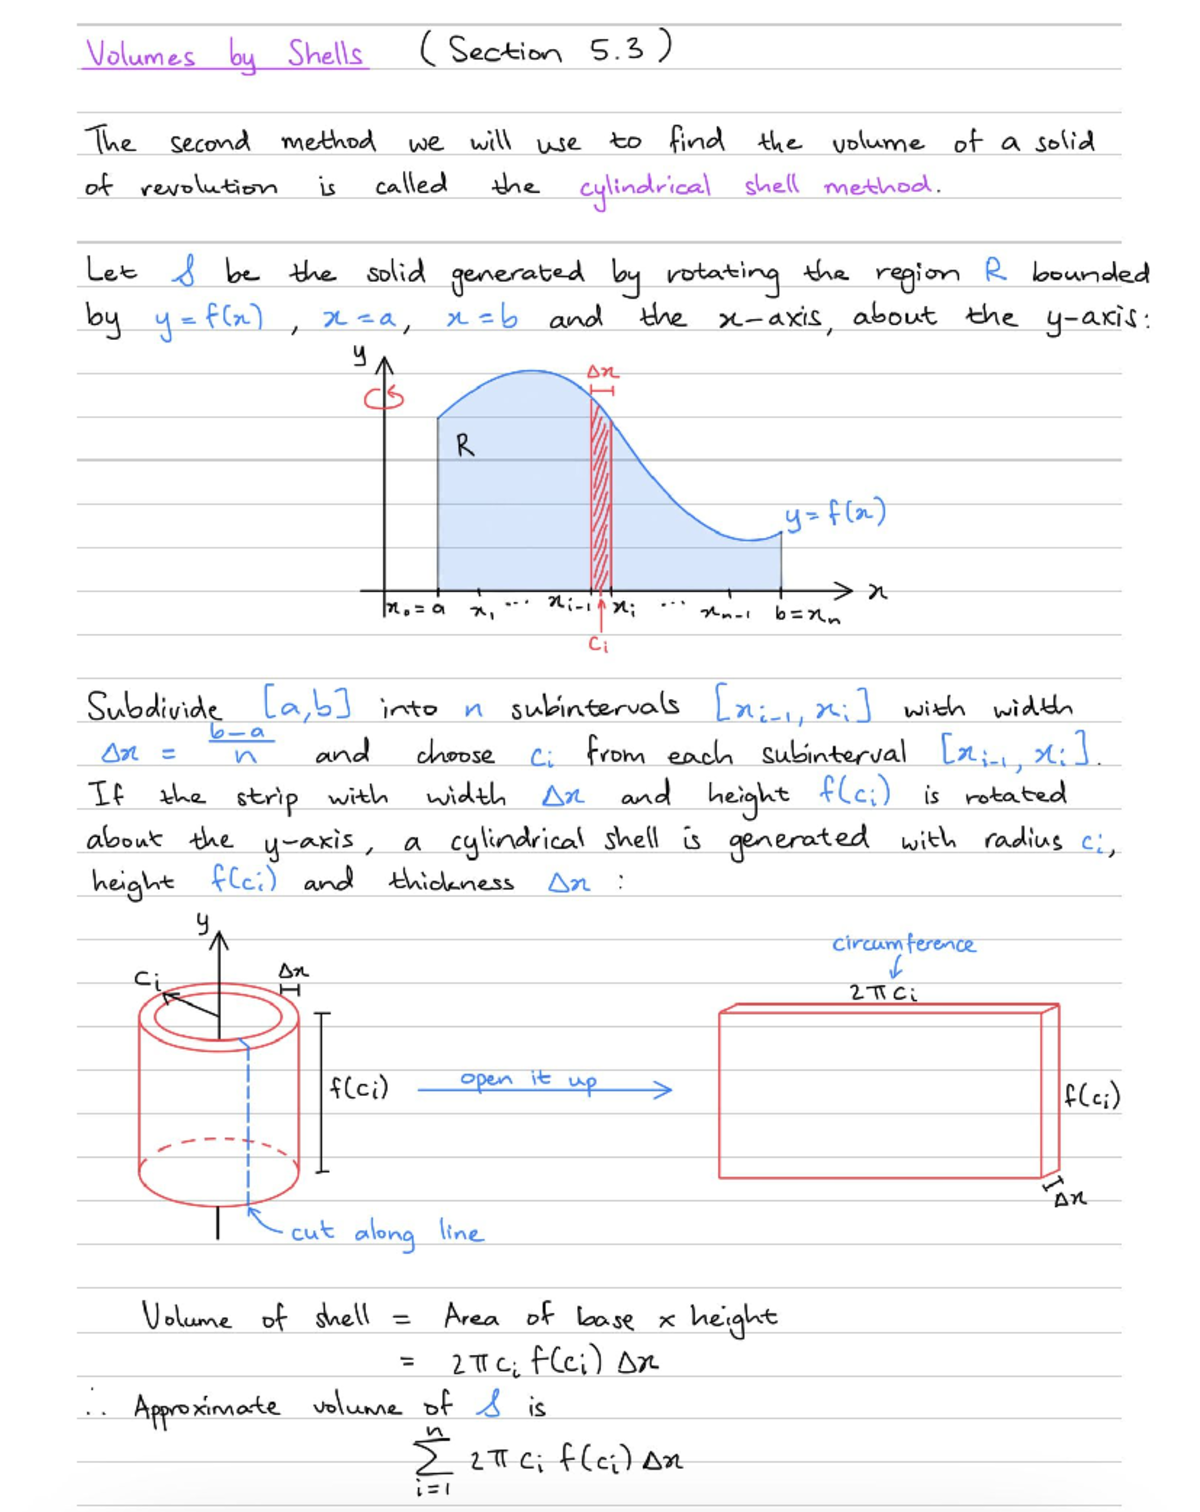 Volumes by Shells (Section 5.3)
The second method we will use to find the volume of a solid
of revolution is called the cylindrical shell method.
Let S be the solid generated by rotating the region R bounded
by y = f(x), x = a, x = b and the x-axis, about the y-axis:
y
Δx
R
y = f(x)
x
x₀ = a x₁ ... xᵢ₋₁ xᵢ ... xₙ₋₁ b = xₙ
cᵢ
Subdivide [a,b] into n subintervals [xᵢ₋₁, xᵢ] with width
Δx = (b-a)/n and choose cᵢ from each subinterval [xᵢ₋₁, xᵢ].
If the strip with width Δx and height f(cᵢ) is rotated
about the y-axis, a cylindrical shell is generated with radius cᵢ,
height f(cᵢ) and thickness Δx :
y
cᵢ
Δx
f(cᵢ)
open it up
cut along line
circumference
2πcᵢ
f(cᵢ)
Δx
Volume of shell = Area of base × height
= 2πcᵢ f(cᵢ) Δx
∴ Approximate volume of S is
n
Σ 2πcᵢ f(cᵢ) Δx
i=1